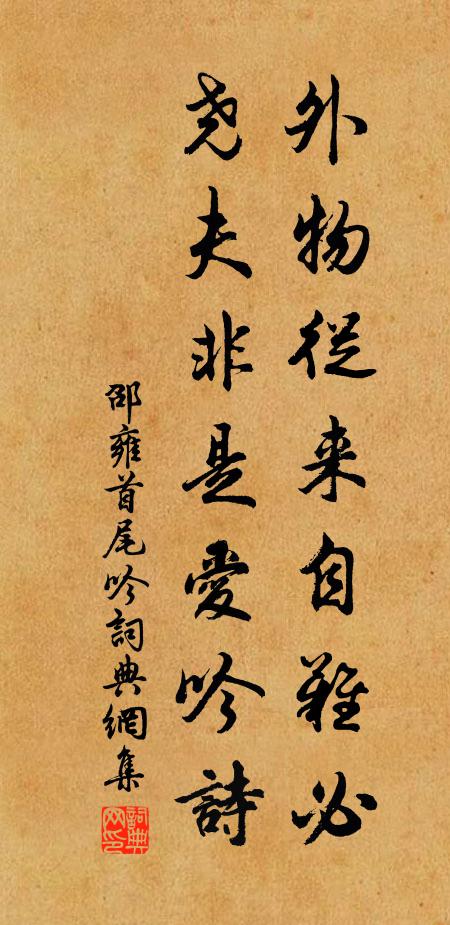 外物從来自難必
尭夫非是愛吟詩
邵雍首尾吟詞典網集
詞典網印